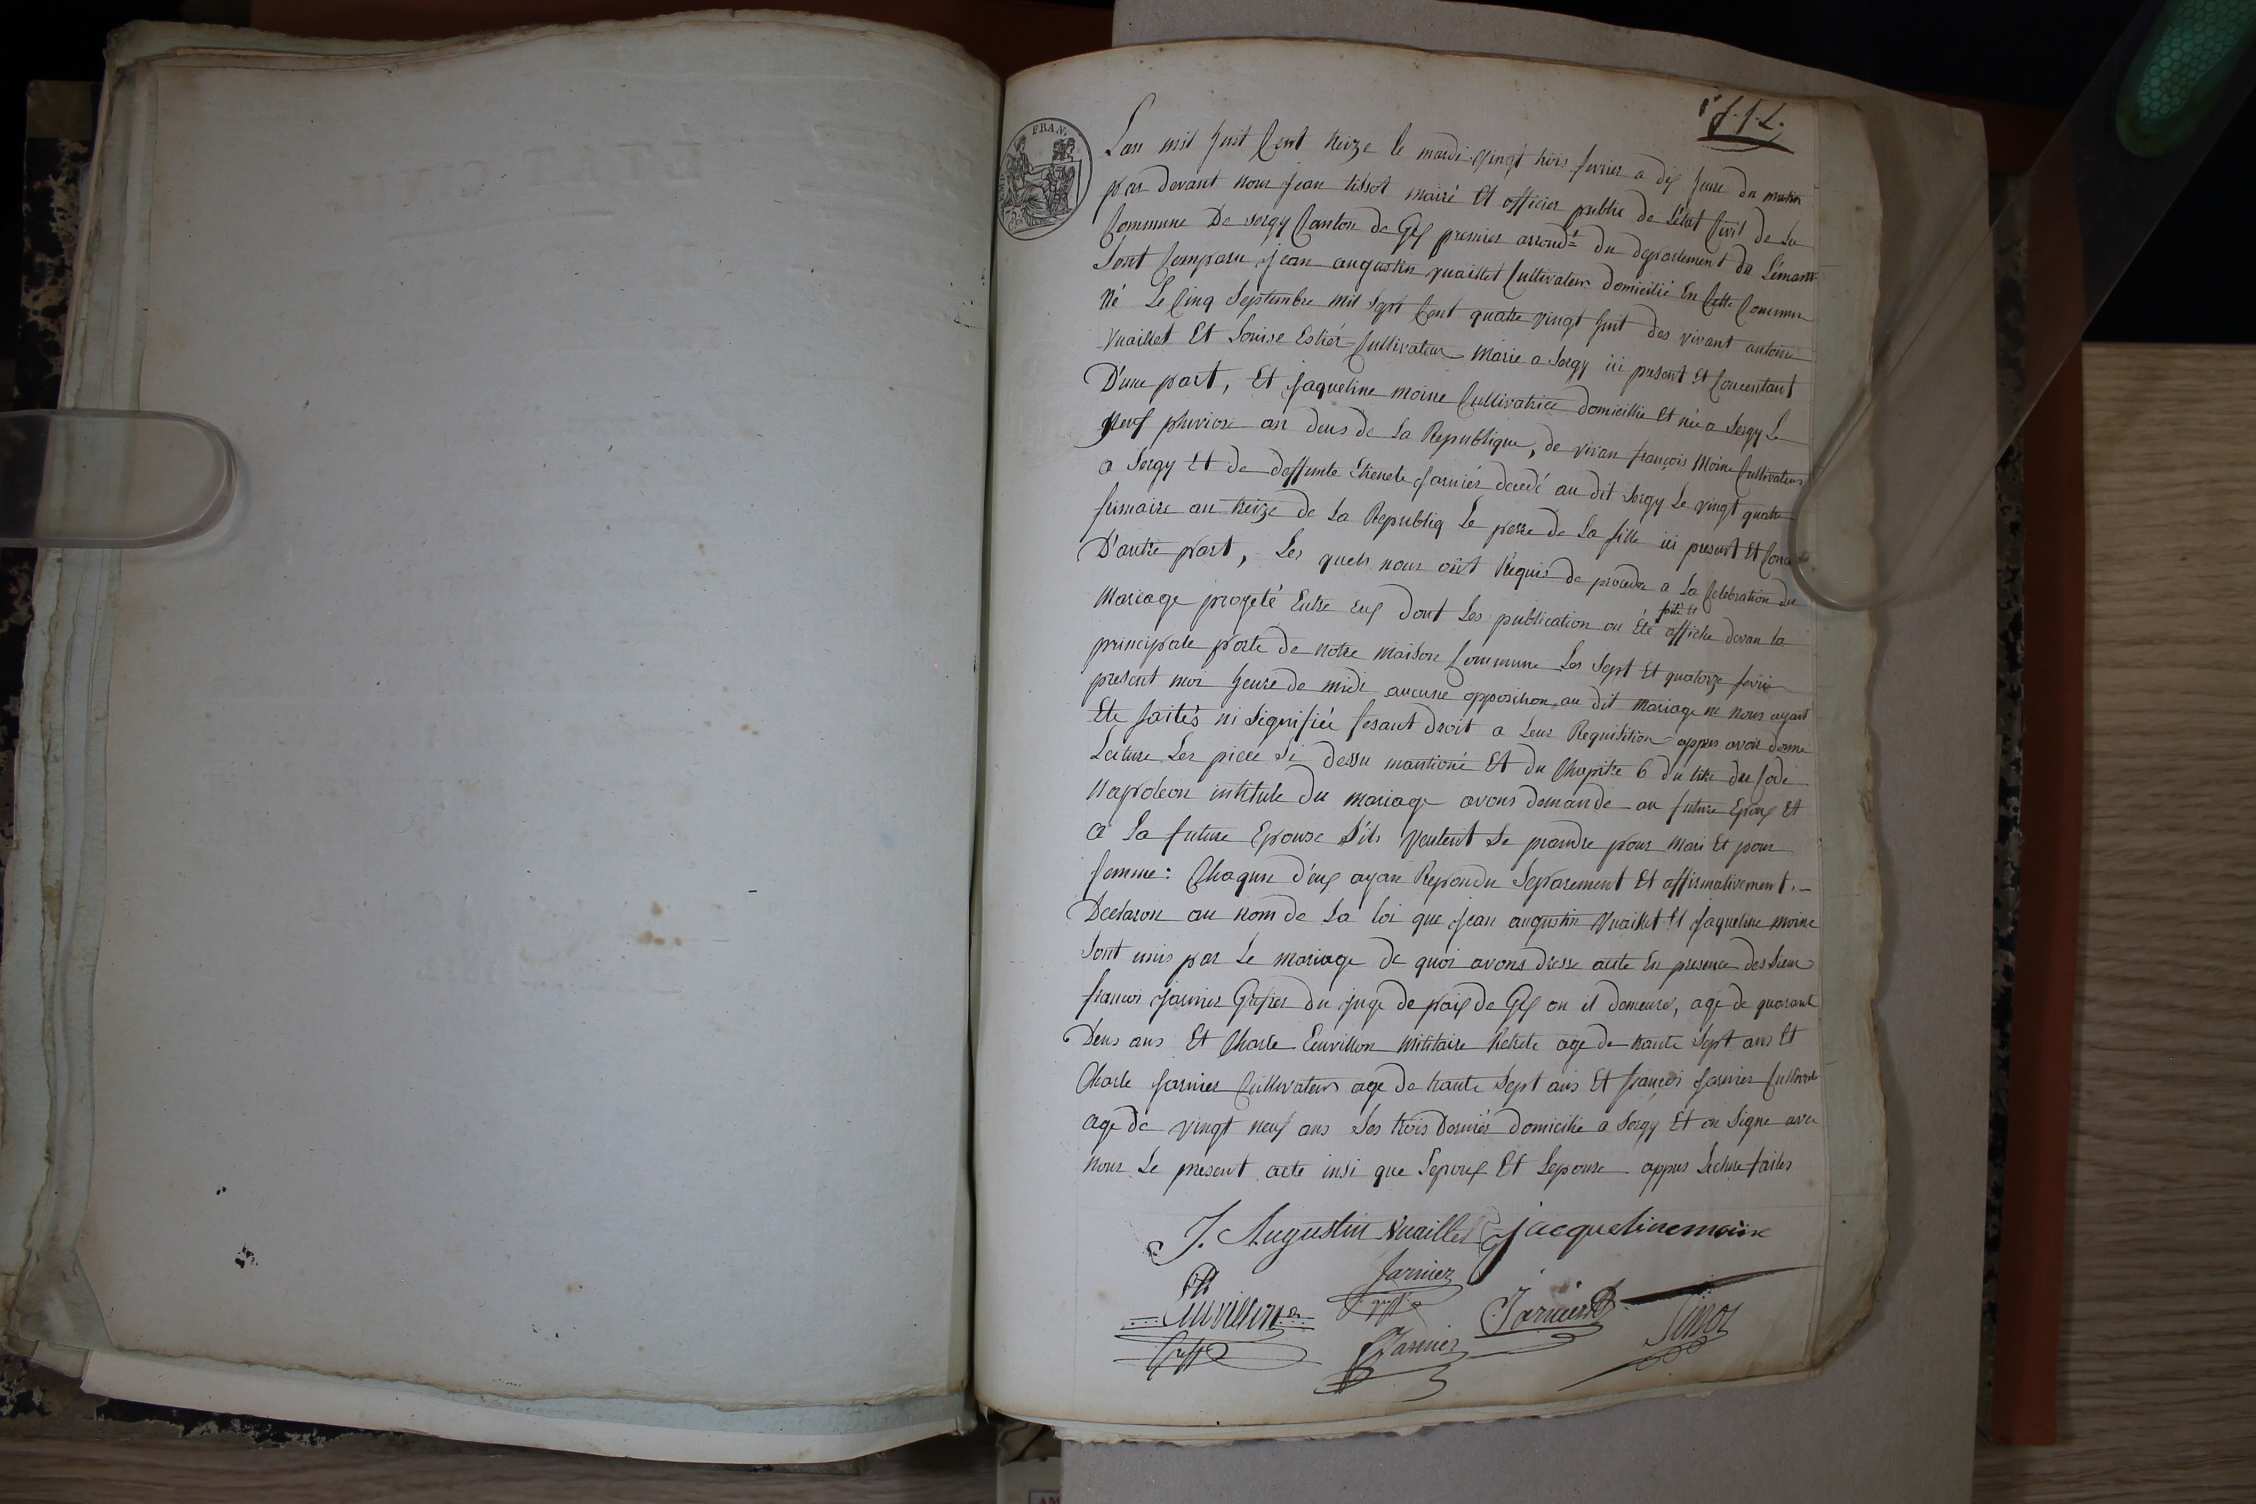 Lan mil huit Cent treize le mardi vingt trois fevrier a dix heure du matin
par devant nous jean tissot maire Et officier public de L'état Civil de La
Commune De sergy Canton de Gex premier arrond.t du departement du Léman
Sont Comparu jean augustin vuaillet Cultivateur domicilié En Cette Commune
Né Le Cinq Septembre mil Sept Cent quatre vingt huit des vivant antoine
Vuaillet Et Louise Estiér Cultivateur Marie a Sergy ici present Et Concentant
D'une part, Et jaqueline moine Cultivatrice domicillie Et née a Sergy Le
Neuf pluviose an deus de La Republique, de vivan françois Moine Cultivateur
a Sergy Et de deffunte Etienete jarniér decedé au dit Sergy Le vingt quatre
frimaire an treize de La Republiq Le perre de La fille ici present Et
D'autre part, Les quels nous ont Requis de proceder a La Celebration du
Mariage progeté Entre eux dont Les publication on été faite et affiche devan la
principale porte de notre maison Commune Les Sept Et quatorze fevrie
present moi heure de midi aucune opposition au dit Mariage ne nous ayant
Ete faités ni Signifiée fesant droit a Leur Requisition appres avoir donne
Lecture Les piece Si dessu mantioné Et du Chapitre 6 du titre du Code
Napoleon intitule Du mariage avons demande au future Epoux Et
a La future Epouse S'ils veulent Se prandre pour Mari Et pour
femme: Chaqun d'eux ayan Repondu Separement Et affirmativement.
Declaron au nom de La loi que jean augustin Vuaillet Et jaqueline moine
Sont unis par Le mariage de quoi avons dresse acte En presence des Sieur
francois jarnier Grefier du juge de paix de Gex ou il demeure, age de quarant
Deus ans Et Charle Cuvillon Militaire Retrete age de trante Sept ans Et
Charle jarnier Cultivateur age de trante Sept ans Et françois jarnier
age de vingt neuf ans Les trois derniér domicilie a Sergy Et on Signe avec
nous Le present acte insi que Lepoux Et Lepouse appres Lecture faites
J. Augustin Vuaillet jacqueline moine
Jarnier
Cuvillon Jarnier
Jarnier Tissot